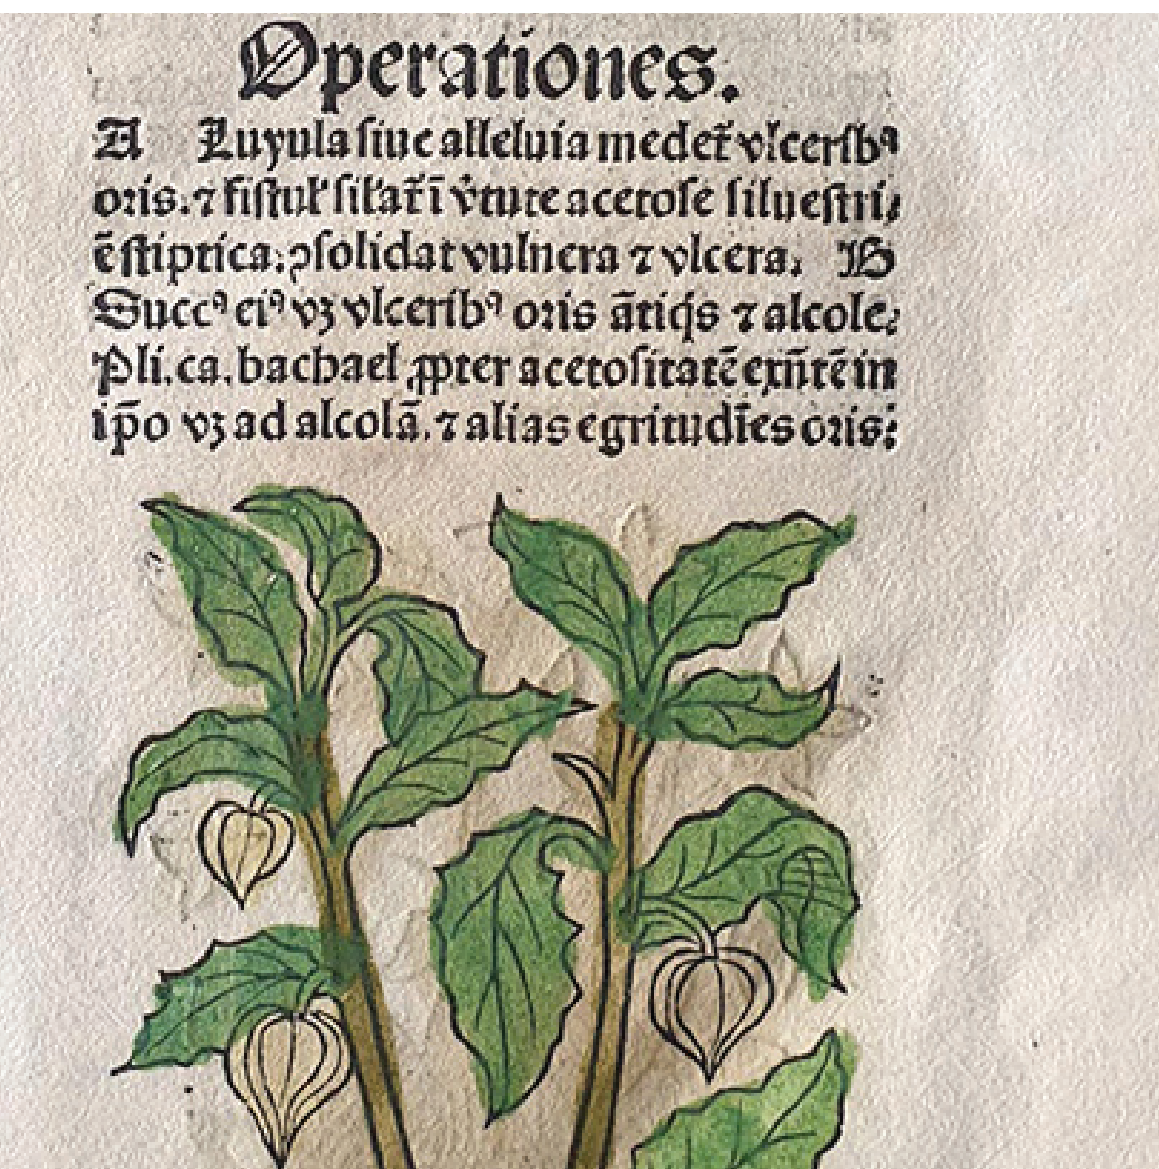 Operationes.
A Luyula ſiue alleluia medet̄ vlcerib⁹
oris. ⁊ fiſtul' ſil'at̄ ī v̉tute acetoſe ſilueſtri⸗
ē ſtiptica: ꝯſolidat vulnera ⁊ vlcera. B
Succ⁹ ei⁹ vꝫ vlcerib⁹ oris ātiq̇s ⁊ alcole⸗
Pli. ca. bachael ꝓpter acetoſitatē exn̄tē in
ip̄o vꝫ ad alcolā. ⁊ alias egritudīes oris: